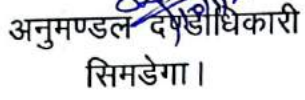 अनुमण्डल दण्डाधिकारी
सिमडेगा।